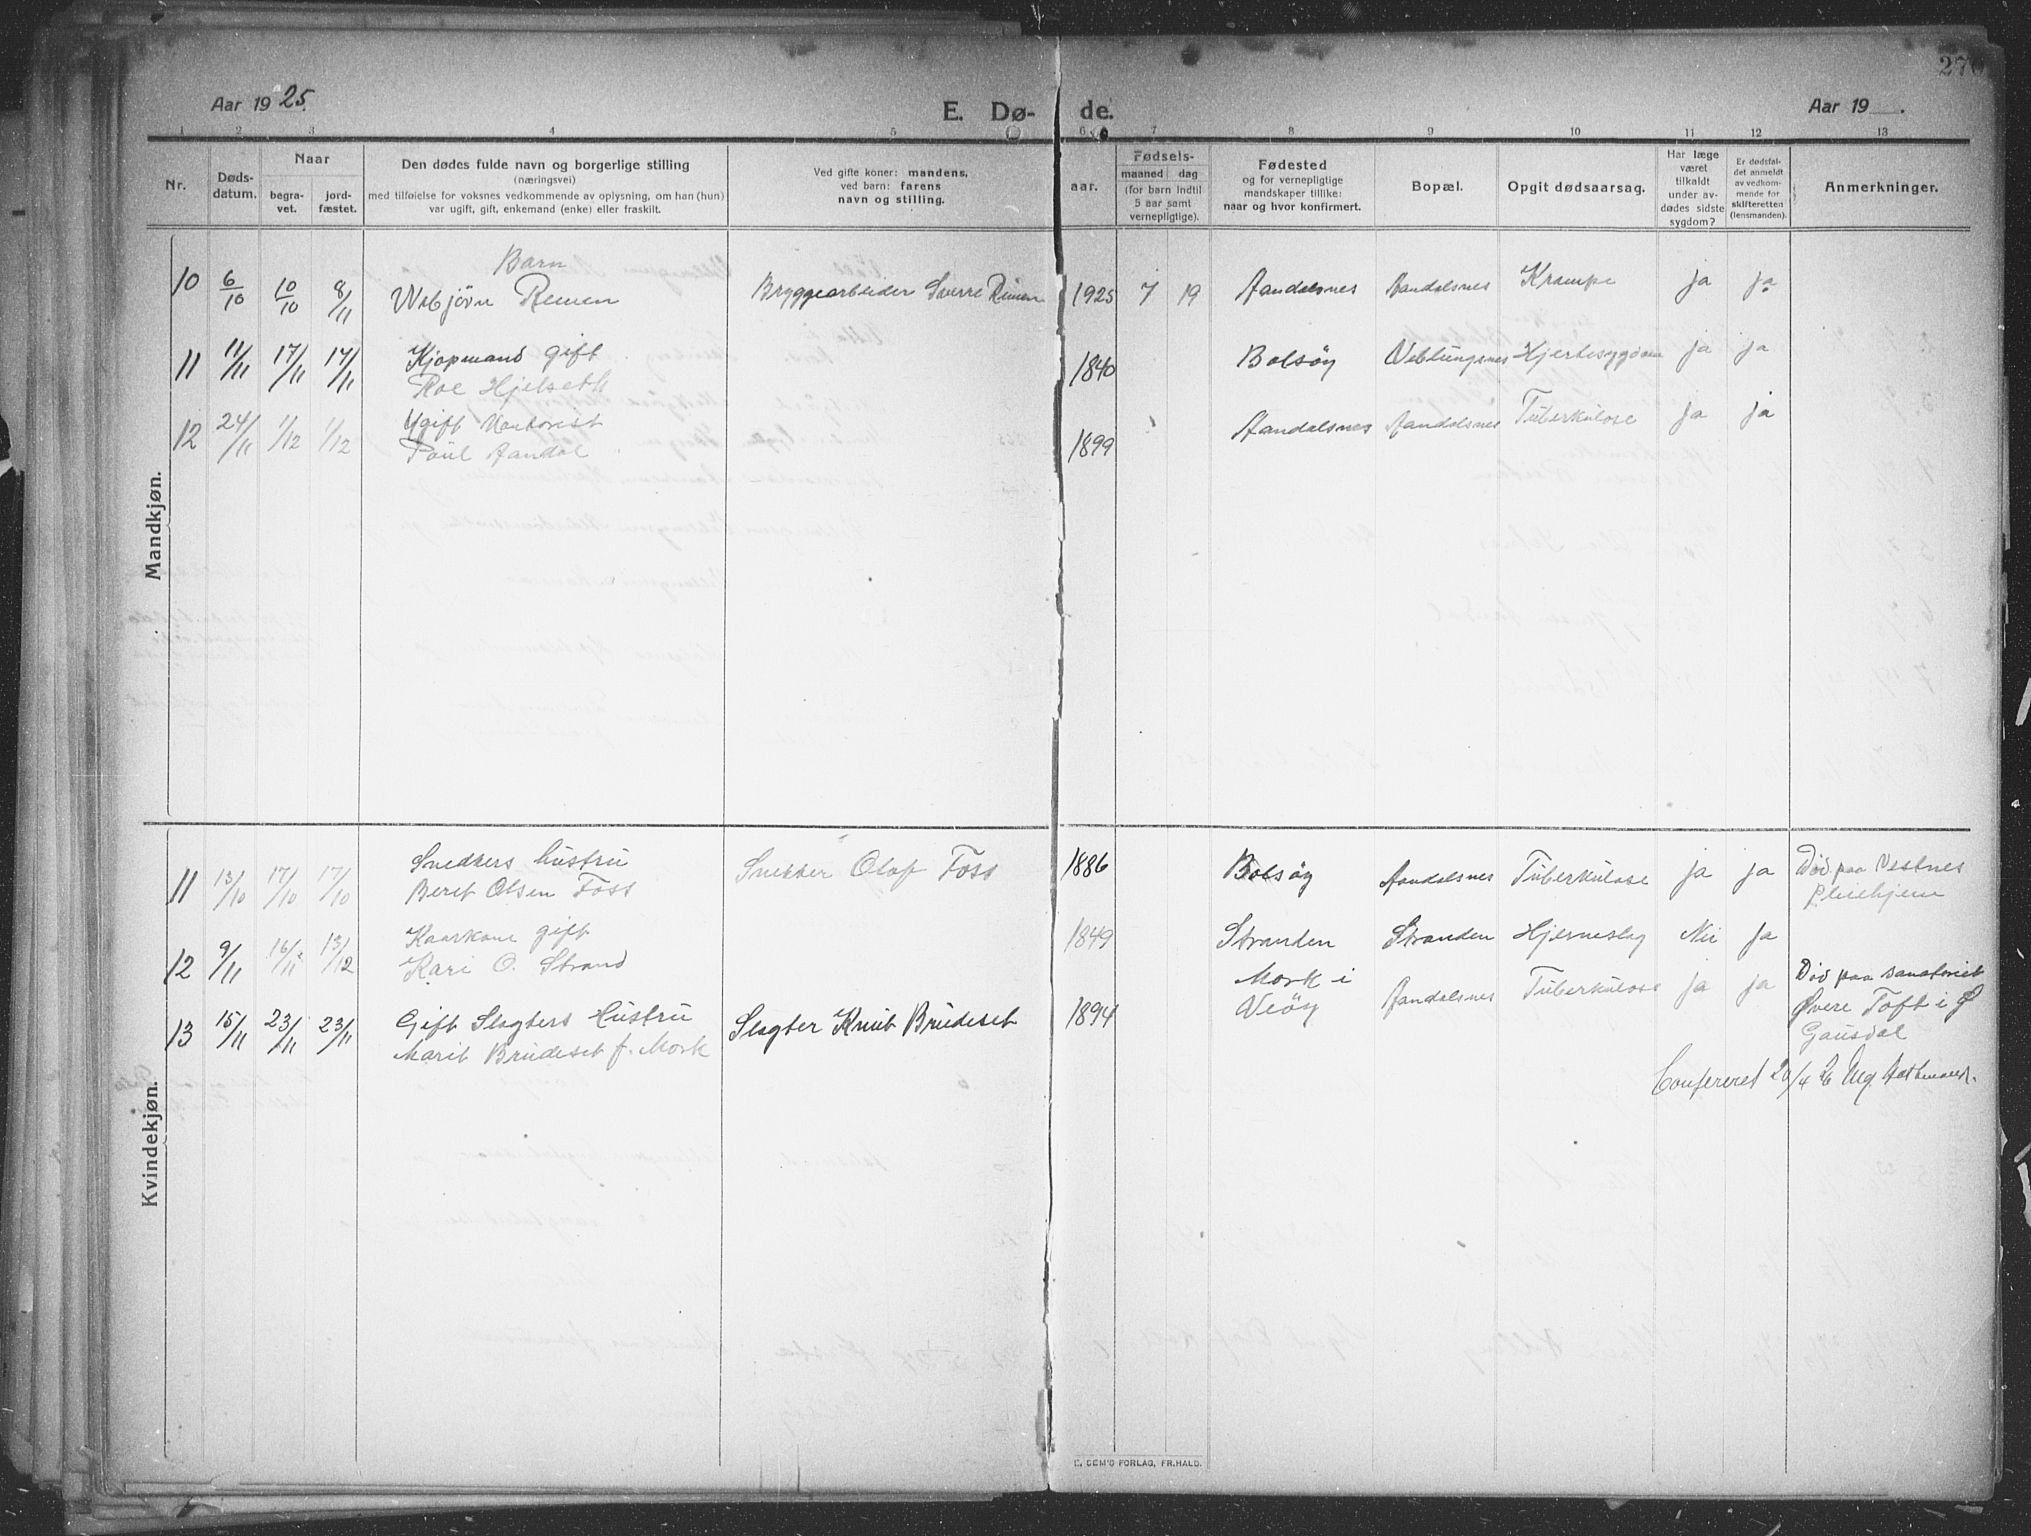 270
Aar 1925.
E. Dø- de.
Aar 19
1 2 3 4 5 6 7 8 9 10 11 12 13
Nr.
Døds-
datum.
Naar
begra-
vet.
jord-
fæstet.
Den dødes fulde navn og borgerlige stilling
(næringsvei)
med tilføielse for voksnes vedkommende av oplysning, om han (hun)
var ugift, gift, enkemand (enke) eller fraskilt.
Ved gifte koner: mandens,
ved barn: farens
navn og stilling.
aar.
Fødsels-
maaned dag
(for barn indtil
5 aar samt
vernepligtige).
Fødested
og for vernepligtige
mandskaper tillike:
naar og hvor konfirmert.
Bopæl.
Opgit dødsaarsag.
Har læge
været
tilkaldt
under av-
dødes sidste
sygdom?
Er dødsfal-
det anmeldt
av vedkom-
mende for
skifteretten
(lensmanden).
Anmerkninger.
Mandkjøn.
Barn
10 6/10 10/10 8/11 Asbjörn Remen Bryggearbeider Sverre Remen 1925 7 19 Aandalsnes Aandalsnes Krampe ja ja
11 11/11 17/11 17/11 Kjøpmand gift
Roe Hjelseth 1840 Bolsöy Veblungsnes Hjertesygdom ja ja
12 24/11 1/12 1/12 Ugift Kontorist
Poul Aandal 1899 Aandalsnes Aandalsnes Tuberkulose ja ja
Kvindekjøn.
11 13/10 17/10 17/10 Snedkers hustru
Beret Olsen Foss Snekker Olaf Foss 1886 Bolsöy Aandalsnes Tuberkulose ja ja Död paa Vestnes
Pleiehjem
12 9/11 16/11 13/12 Kaarkone gift
Kari O. Strand 1849 Stranden Stranden Hjerneslag Nei Ja
13 15/11 23/11 23/11 Gift Slagters Hustru
Marit Brudeset f. Mork Slagter Knut Brudeset 1894 Mork i
Veöy Aandalsnes Tuberkulose ja ja Död paa sanatoriet
Øvere Toft i Ø
Gausdal
Confereret 20/4 26
E. SEM'S FORLAG, FR.HALD.